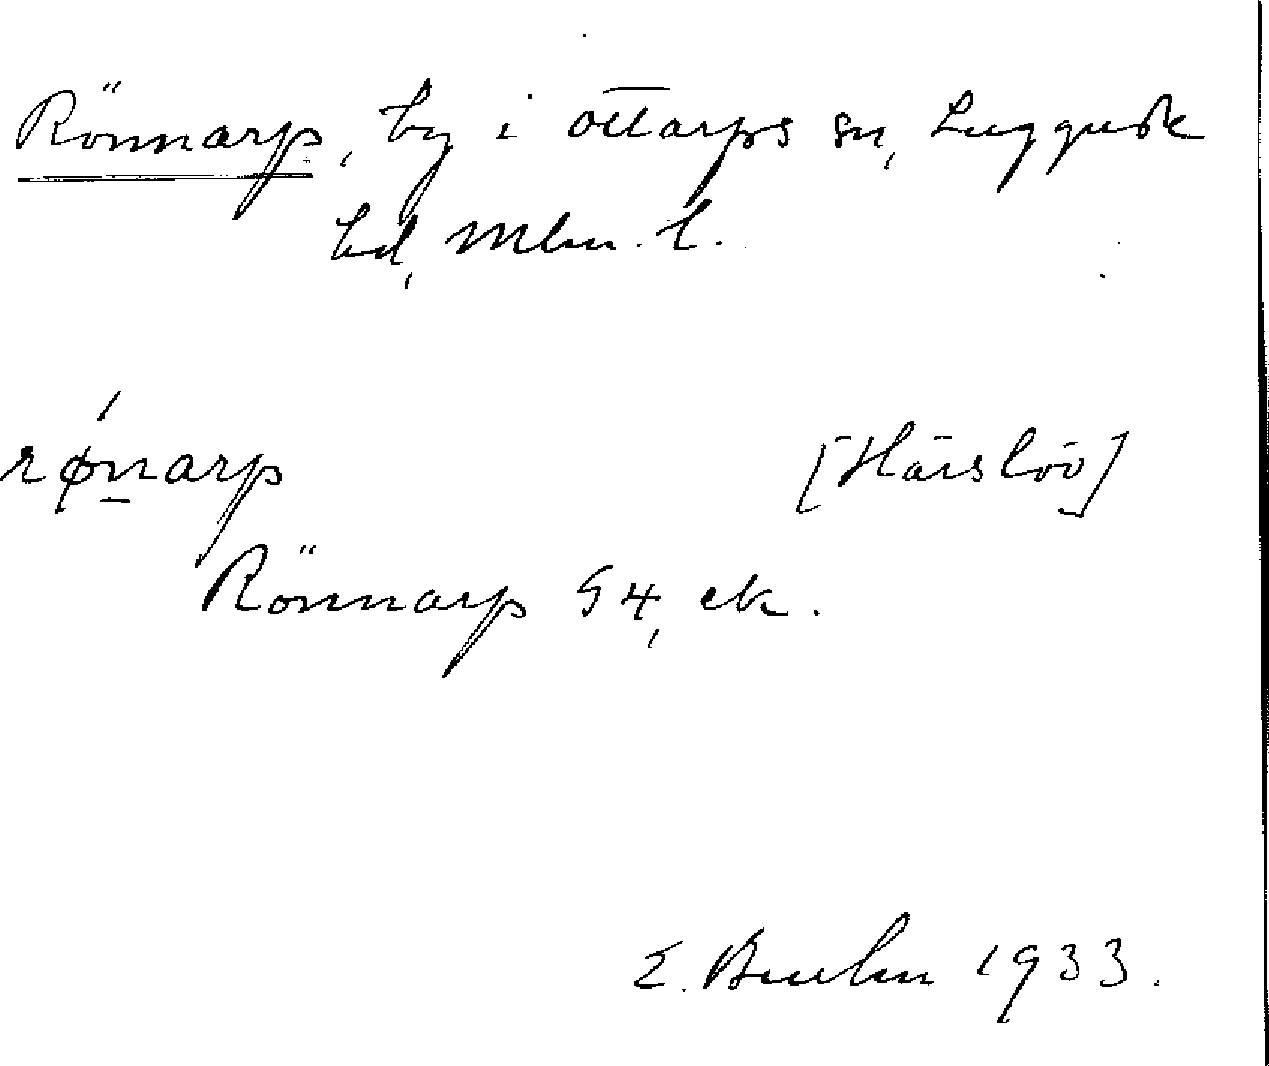 Rönnarp, by i Ottarps sn, Luggude
hd, Mlm. l.
rǿnarp [Härslöv]
Rönnarp 54, ek.
1933.